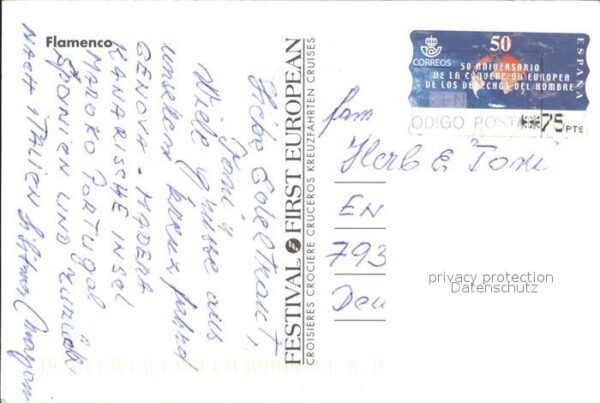 Flamenco
Liebe Edeltraut,
Toni
Viele Grüsse aus
unserer Kreuzfahrt
GENOVA - MADERA
KANARISCHE INSEL
MAROKO PORTUGAL
SPONIEN UND ZURÜCK
NACH ITALIEN
FESTIVAL FIRST EUROPEAN
CROISIERES CROCIERE CRUCEROS KREUZFAHRTEN CRUISES
CORREOS
50
50 ANIVERSARIO
DE LA CONVENCIÓN EUROPEA
DE LOS DERECHOS DEL HOMBRE
ESPAÑA
ODIGO POSTA
**75 PTS
Fam
Herb & Toni
EN
793
Deu
privacy protection
Datenschutz